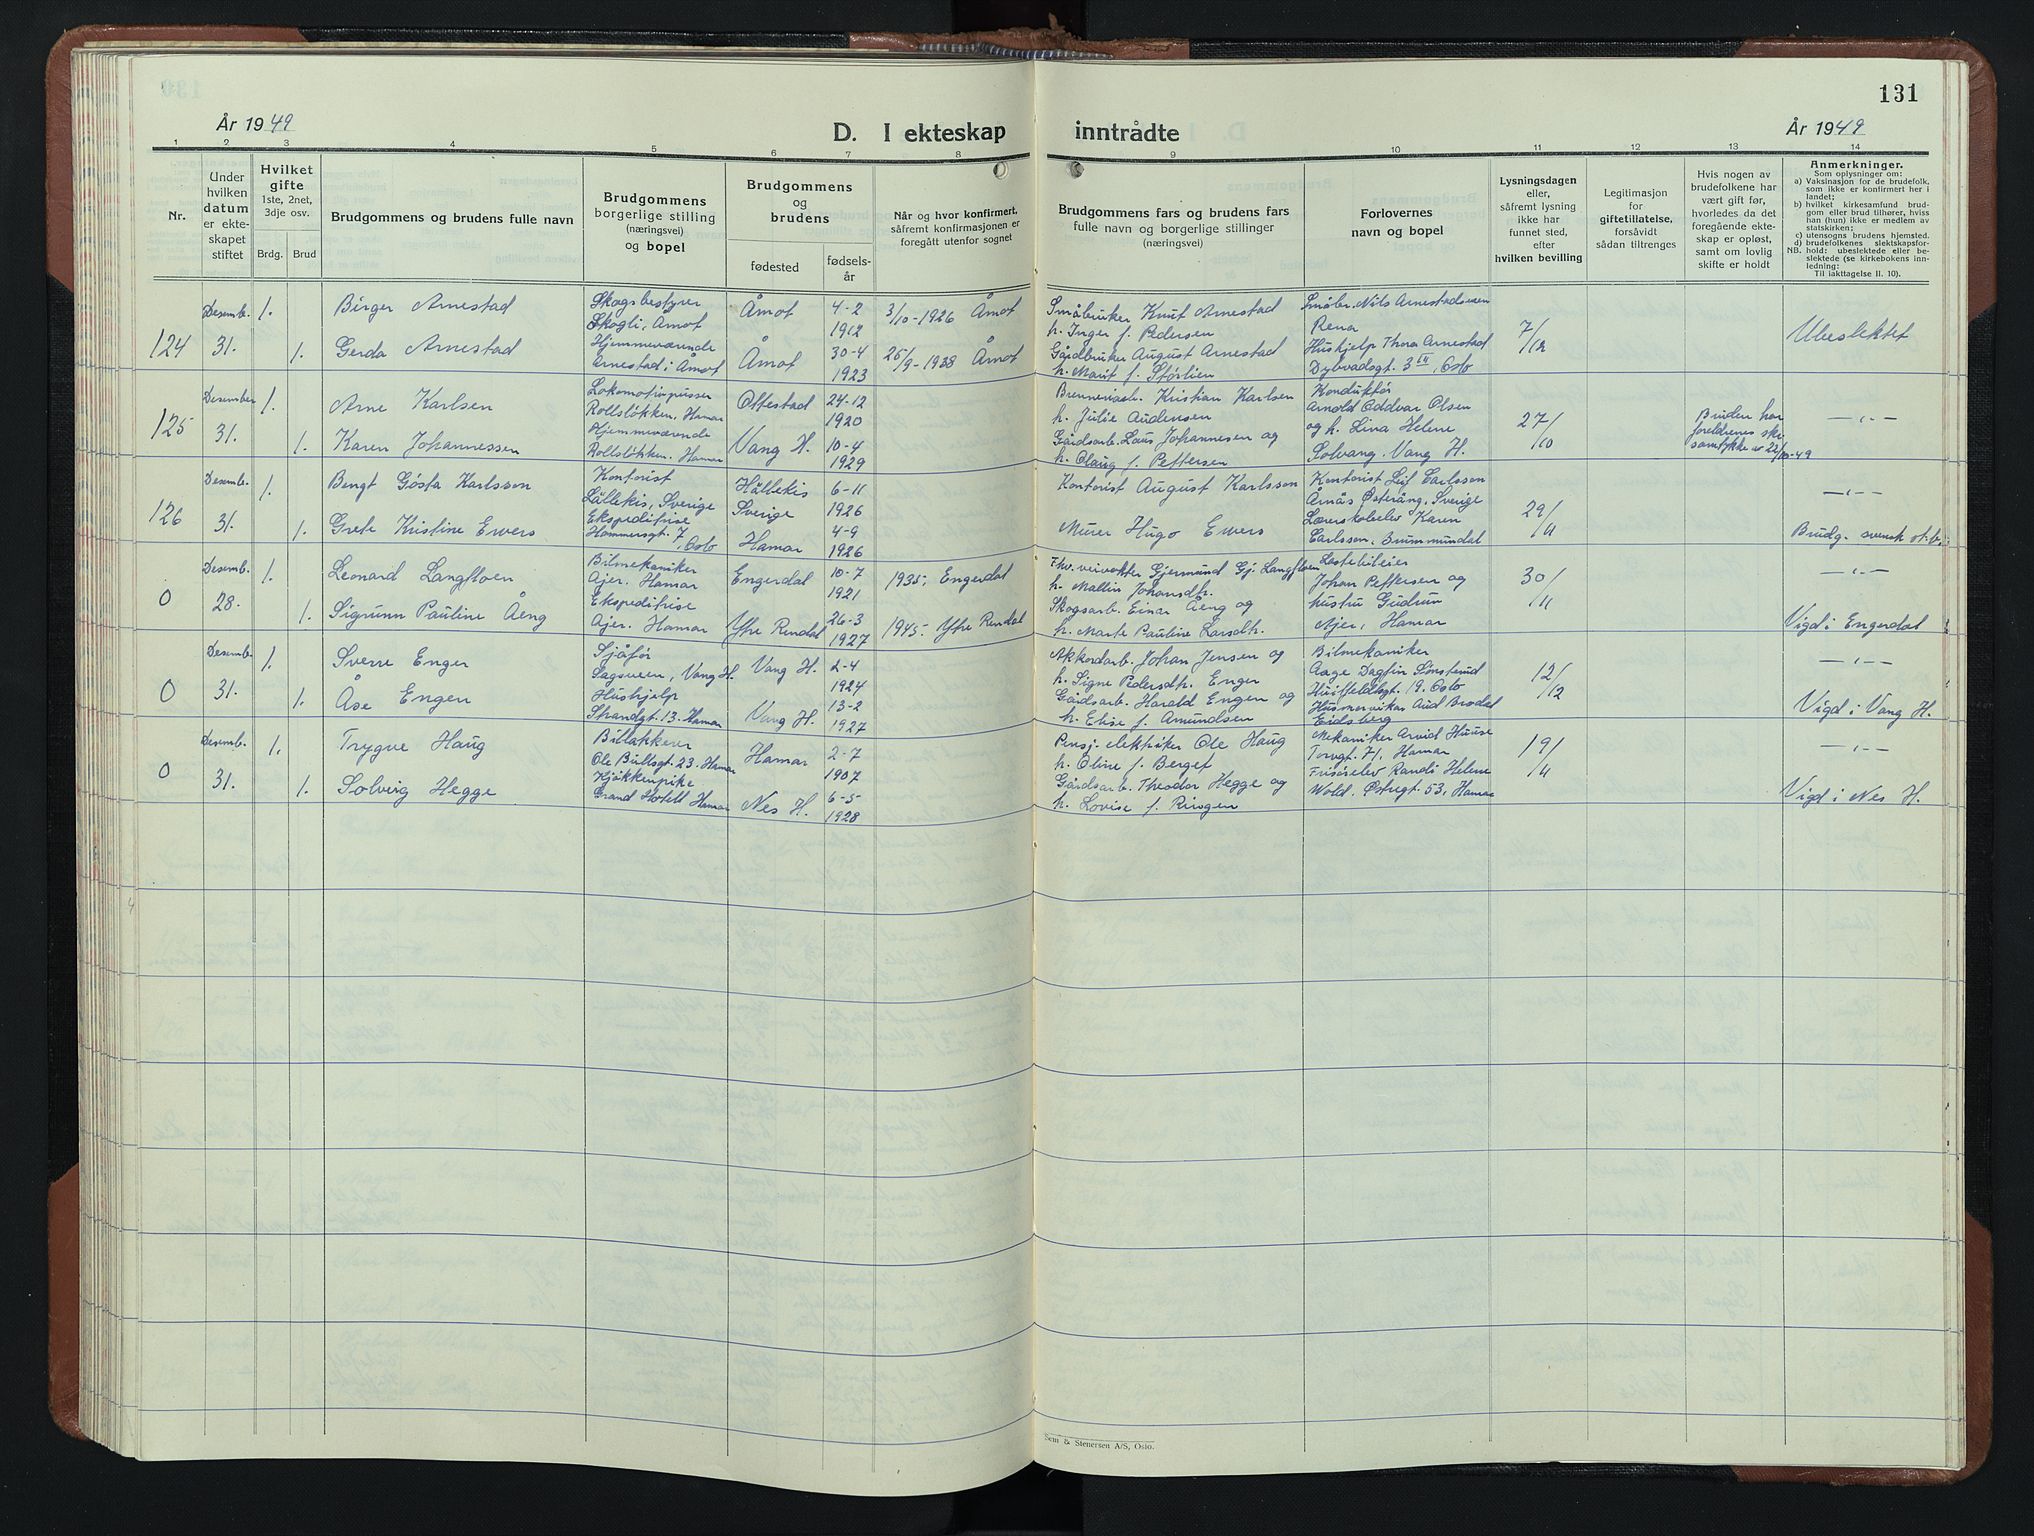 131
År 1949
D. I ekteskap inntrådte
År 1949
1 2 3 4 5 6 7 8 9 10 11 12 13 14
Nr.
Under
hvilken
datum
er ekte-
skapet
stiftet
Hvilket
gifte
1ste, 2net,
3dje osv.
Brdg. Brud
Brudgommens og brudens fulle navn
Brudgommens
borgerlige stilling
(næringsvei)
og bopel
Brudgommens
og
brudens
fødested
fødsels-
år
Når og hvor konfirmert,
såfremt konfirmasjonen er
foregått utenfor sognet
Brudgommens fars og brudens fars
fulle navn og borgerlige stillinger
(næringsvei)
Forlovernes
navn og bopel
Lysningsdagen
eller,
såfremt lysning
ikke har
funnet sted,
efter
hvilken bevilling
Legitimasjon
for
giftetillatelse,
forsåvidt
sådan tiltrenges
Hvis nogen av
brudefolkene har
vært gift før,
hvorledes da det
foregående ekte-
skap er opløst,
samt om lovlig
skifte er holdt
Anmerkninger.
Som oplysninger om:
a) Vaksinasjon for de brudefolk,
som ikke er konfirmert her i
landet;
b) hvilket kirkesamfund brud-
gom eller brud tilhører, hviss
han (hun) ikke er medlem av
statskirken;
c) utensogns brudens hjemsted.
d) brudefolkenes slektskapsfor-
hold: ubeslektede eller be-
slektede (se kirkebokens inn-
ledning:
NB. Til iakttagelse II. 10).
124
Desemb. 31.
1. Birger Arnestad
Skogsbestyrer
Skogli, Åmot
Åmot 4-2 1912
3/10-1926 Åmot
Småbruker Knut Arnestad
h. Inger f. Pedersen
1. Gerda Arnestad
Hjemmeværende
Arnestad i Åmot
Åmot 30-4 1923
25/9-1938 Åmot
Gårdbruker August Arnestad
h. Marit f. Størlien
Småbr. Nils Arnestadsveen
Rena
Hushjelp Thora Arnestad
Dybvadsgt. 3 III, Oslo
7/12
Ubeslektet
125
Desember 31.
1. Arne Karlsen
Lokomotivpusser
Rollsløkken, Hamar
Ottestad 24-12 1920
Kristian Karlsen
h. Julie Audensen
1. Karen Johannessen
Hjemmeværende
Rollsløkken, Hamar
Vang H. 10-4 1929
Gårdsarb. Laus Johannesen og
h. Olaug f. Pettersen
Konduktør
Arnold Oddvar Olsen
og h. Lina Helene
Solvang, Vang H.
27/10
Bruden har
foreldrenes skr.
samtykke av
-"-
126
Desemb. 31.
1. Bengt Gösta Karlsson
Kontorist
Sverige
Hällekis
Sverige
6-11 1926
Kontorist August Karlsson
1. Grete Kristine Ewers
Ekspeditrise
Hammersgt. 7, Oslo
Hamar 4-9 1926
Murer Hugo Ewers
Kontorist Leif Carlsson
Årnäs Österäng, Sverige
Lærerskolelev Karen
Carlsson, Brummundal
29/11
-"-
Brudg. svensk st.b.
0
Desemb. 28.
1. Leonard Langfloen
Bilmekaniker
Ajer, Hamar
Engerdal 10-7 1921
1935, Engerdal
Fhv. veivokter Gjermund Gj. Langfloen
h. Mallin Johansdh.
1. Sigrunn Pauline Åeng
Ekspeditrise
Ajer, Hamar
Ytre Rendal 26-3 1927
1945. Ytre Rendal
Skogsarb. Einar Åeng og
h. Marte Pauline Larsdh.
Lastebileier
Johan Pettersen og
hustru Gudrun
Ajer, Hamar
30/11
-"-
Vigd i Engerdal
0
Desemb. 31.
1. Sverre Enger
Sjåfør
Sagsveen, Vang H.
Vang H. 2-4 1924
Akkordarb. Johan Jensen og
h. Signe Pedersdh. Enger
1. Åse Engen
Hushjelp
Strandgt. 13. Hamar
Vang H. 13-2 1927
Gårdsarb. Harald Engen og
h. Elise f. Amundsen
Bilmekaniker
Aage Dagfin Sønsterud
Huitfeldtsgt. 19. Oslo
Husmorvikar Aud Brodal
Eidsberg
12/12
-"-
Vigd i Vang H.
0
Desemb. 31.
1. Trygve Haug
Billakkerer
Ole Bullsgt. 23. Hamar
Hamar 2-7 1907
Pensj. elektriker Ole Haug
h. Oline f. Berget
1. Solveig Hegge
Kjøkkenpike
Grand Hotell Hamar
Nes H. 6-5 1928
Gårdsarb. Theodor Hegge og
h. Lovise f. Ringen
Mekaniker Arvid Huuse
Torvgt. 71, Hamar
Frisørelev Randi Helene
Wold. Østregt. 53, Hamar
19/11
-"-
Vigd i Nes H.
Sem & Stenersen A/S, Oslo.